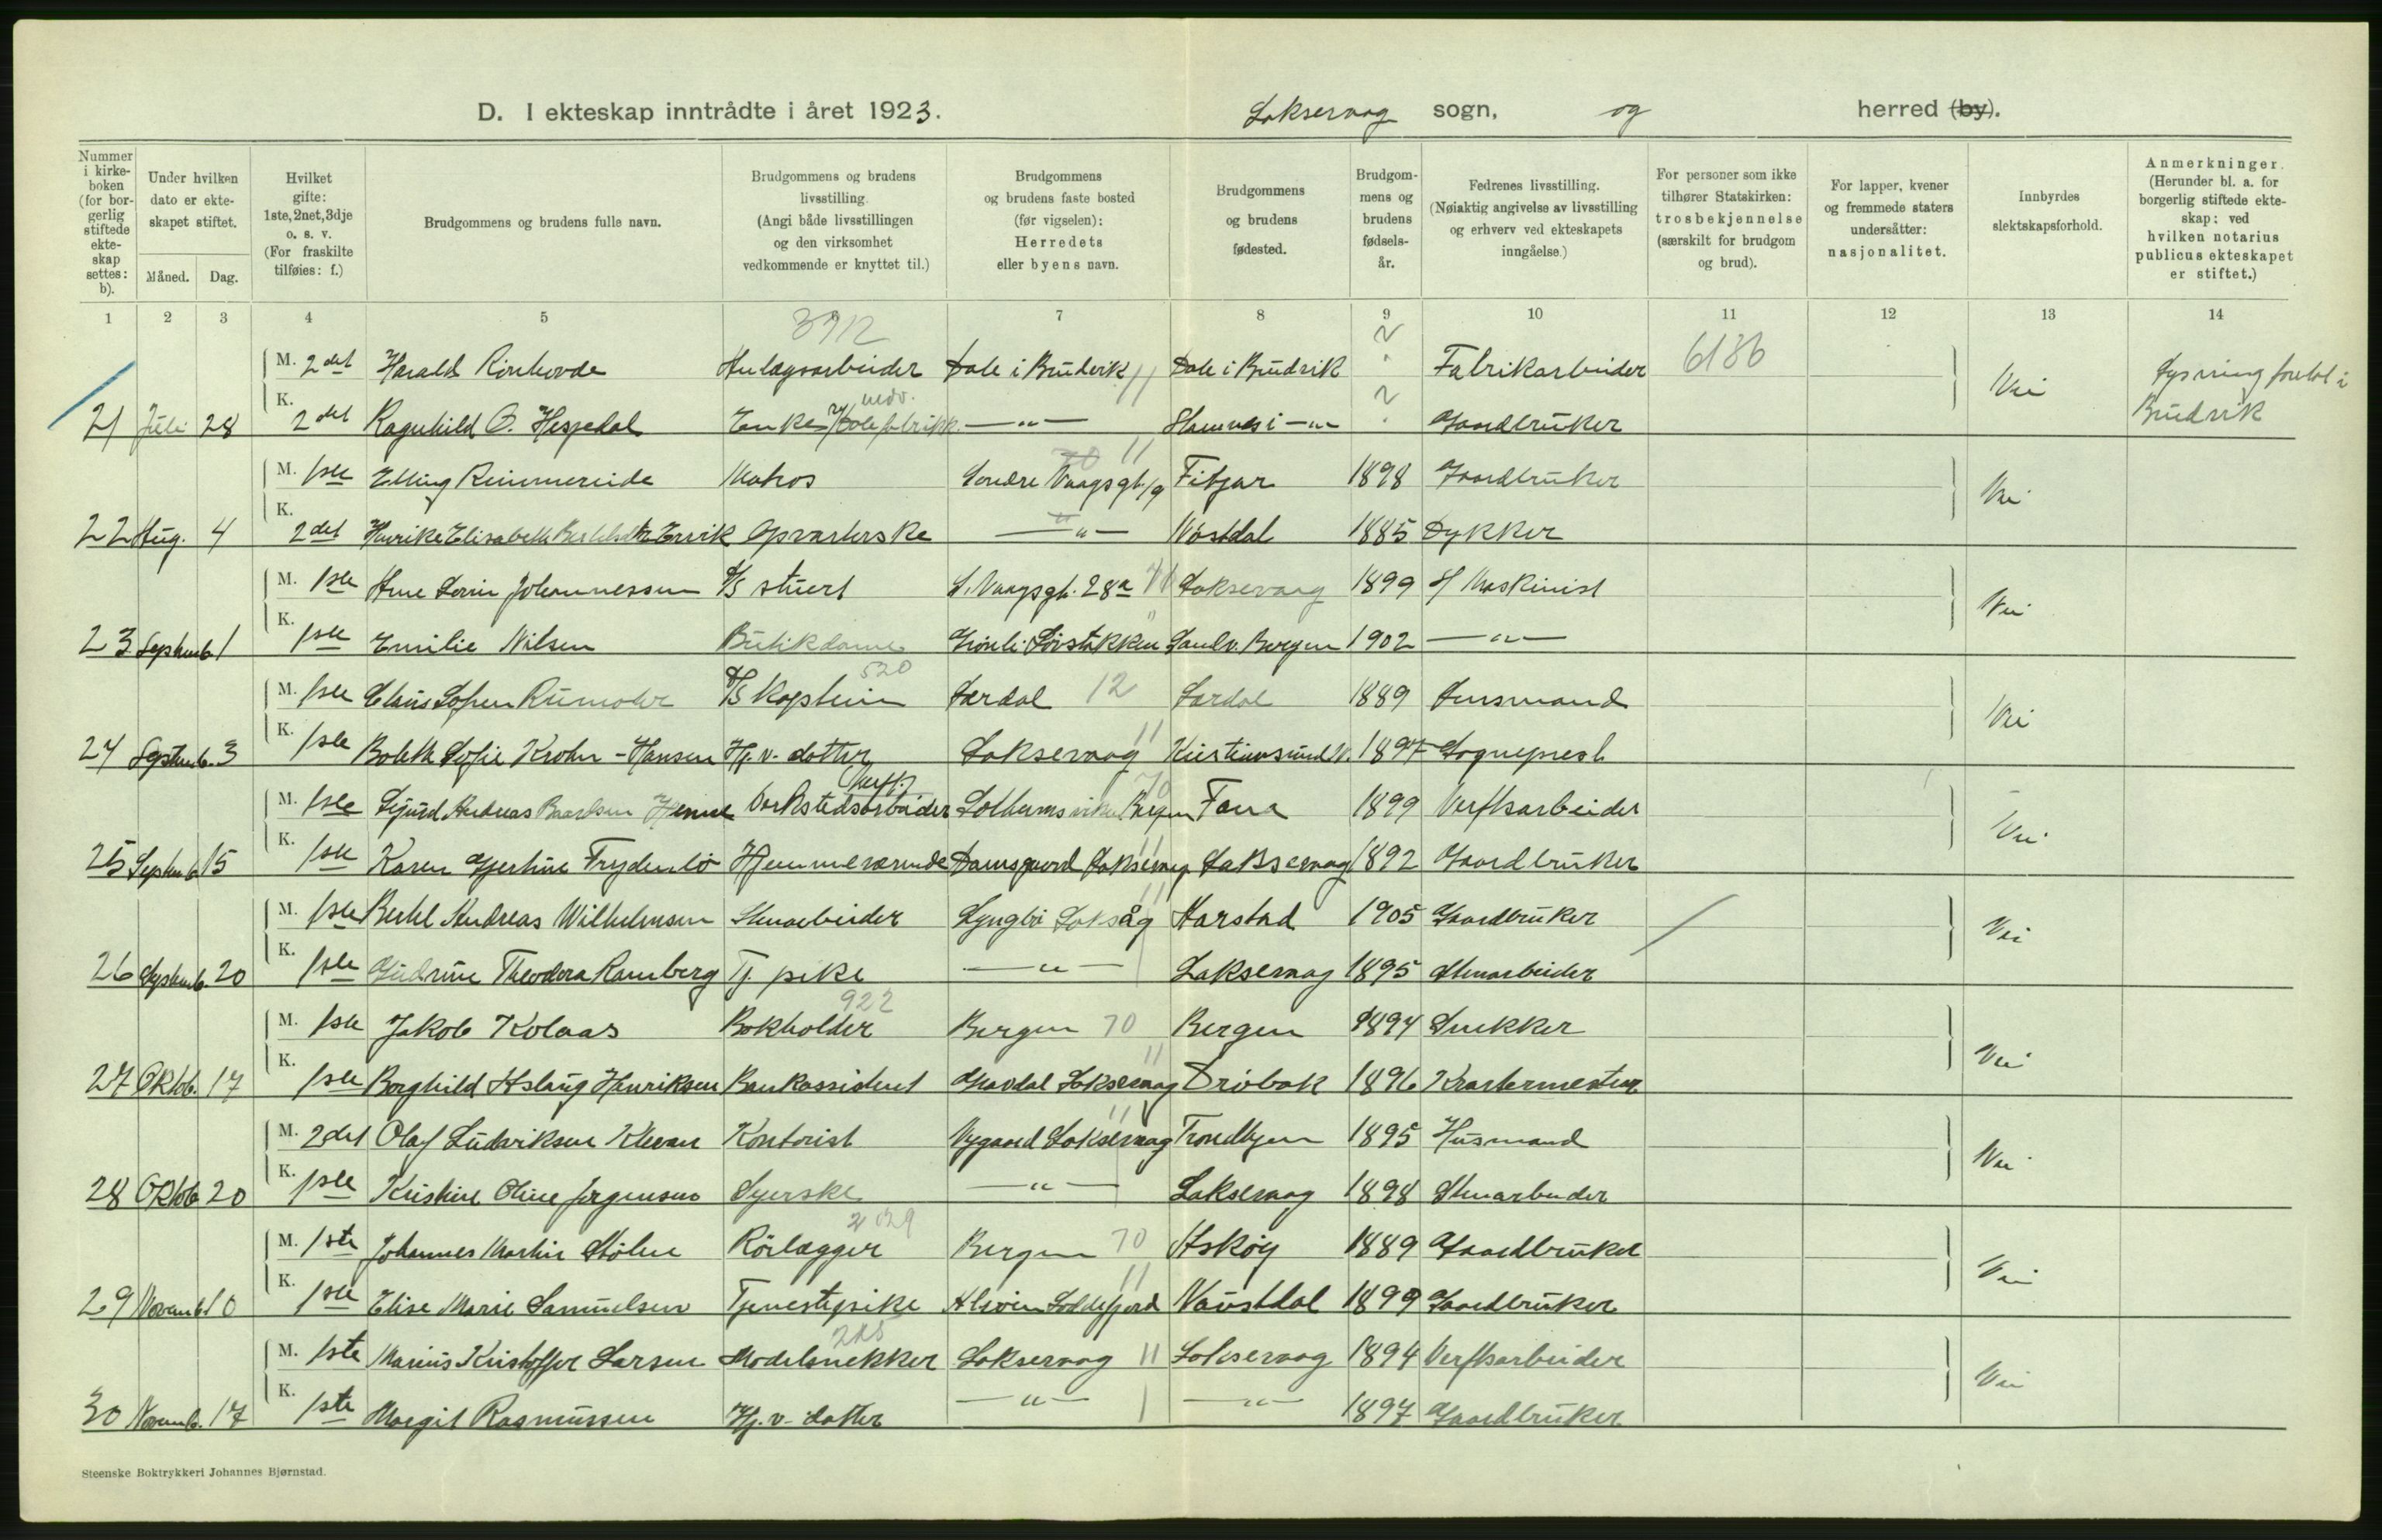 D. I ekteskap inntrådte i året 1923. Laksevaag sogn, og herred (by).
Nummer i kirkeboken (for borgerlig stiftede ekteskap settes: b).
Under hvilken dato er ekteskapet stiftet.
Måned. Dag.
Hvilket gifte: 1ste, 2net, 3dje o. s. v. (For fraskilte tilføies: f.)
Brudgommens og brudens fulle navn.
Brudgommens og brudens livsstilling. (Angi både livsstillingen og den virksomhet vedkommende er knyttet til.)
Brudgommens og brudens faste bosted (før vigselen): Herredets eller byens navn.
Brudgommens og brudens fødested.
Brudgommens og brudens fødselsår.
Fedrenes livsstilling. (Nøiaktig angivelse av livsstilling og erhverv ved ekteskapets inngåelse.)
For personer som ikke tilhører Statskirken: trosbekjennelse (særskilt for brudgom og brud).
For lapper, kvener og fremmede staters undersåtter: nasjonalitet.
Innbyrdes slektskapsforhold.
Anmerkninger. (Herunder bl. a. for borgerlig stiftede ekteskap: ved hvilken notarius publicus ekteskapet er stiftet.)
1 2 3 4 5 6 7 8 9 10 11 12 13 14
3912
M. 2det Harald Dale i Bruvik 11 Dale i Bruvik ? Fabrikarbeider 6186
21 Juli 28 K. 2det Ragnhild O. Hespedal Enke —"— Hamnes i —"— ? Gaardbruker Nei Bruvik
M. 1ste Elling Rimmereide Matros Søndre Vaagsgt. 19 Fitjar 1898 Gaardbruker
22 Aug. 4 K. 2det Henrike Elisabeth Ervik Opvarterske —"— 1885 Dykker Nei
M. 1ste Johannessen D/S stuert S. Vaagsgt. 28a Laksevaag 1899 Maskinist
23 Septemb. 1 K. 1ste Emilie Nilsen Butikdame Løvstakken Bergen 1902 —"— Nei
520
M. 1ste Claus Rumohr D/S Kaptein Lærdal 12 Lærdal 1889 Lensmand
24 Septemb. 3 K. 1ste Boleth Sofie Krohn-Hansen Hj. v. datter Laksevaag 11 Kristiansund N. 1897 Sogneprest Nei
M. 1ste Sigurd Andreas Baardsen Verkstedsarbeider Solheimsviken Bergen 70 Fana 1899 Verftsarbeider
25 Septemb. 15 K. 1ste Karen Gjertine Frydenbø Hjemmeværende Damsgaard Laksevaag 11 Laksevaag 1892 Gaardbruker Nei
M. 1ste Bertel Andreas Wilhelmsen Stenarbeider Lyngbø Laksåg 11 Harstad 1905 Gaardbruker
26 Septemb. 20 K. 1ste Gudrun Theodora Ramberg Tj. pike —"— Laksevaag 1895 Stenarbeider Nei
922
M. 1ste Jakob Kolaas Bokholder Bergen 70 Bergen 1894 Snekker
27 Oktob. 17 K. 1ste Borghild Aslaug Henriksen Bankassistent Gravdal Laksevaag 11 Drøbak 1896 Kvartermester Nei
M. 2det Olaf Ludviksen Klevan Kontorist Nygaard Laksevaag 11 Trondhjem 1895 Husmand
28 Oktob. 20 K. 1ste Kristine Oline Jørgensen Syerske —"— Laksevaag 1898 Stenarbeider Nei
M. 1ste Johannes Martin Stølen Rørlægger Bergen 70 Askøy 1889 Gaardbruker
29 Novemb. 10 K. 1ste Elise Marie Samuelsen Tjenestepike Alvøen Loddefjord 11 Naustdal 1899 Gaardbruker Nei
M. 1ste Marius Kristoffer Larsen Modelsnekker Laksevaag 11 Laksevaag 1894 Verftsarbeider
30 Novemb. 17 K. 1ste Margit Rasmussen Hj. v. datter —"— —"— 1897 Gaardbruker Nei
Steenske Boktrykkeri Johannes Bjørnstad.